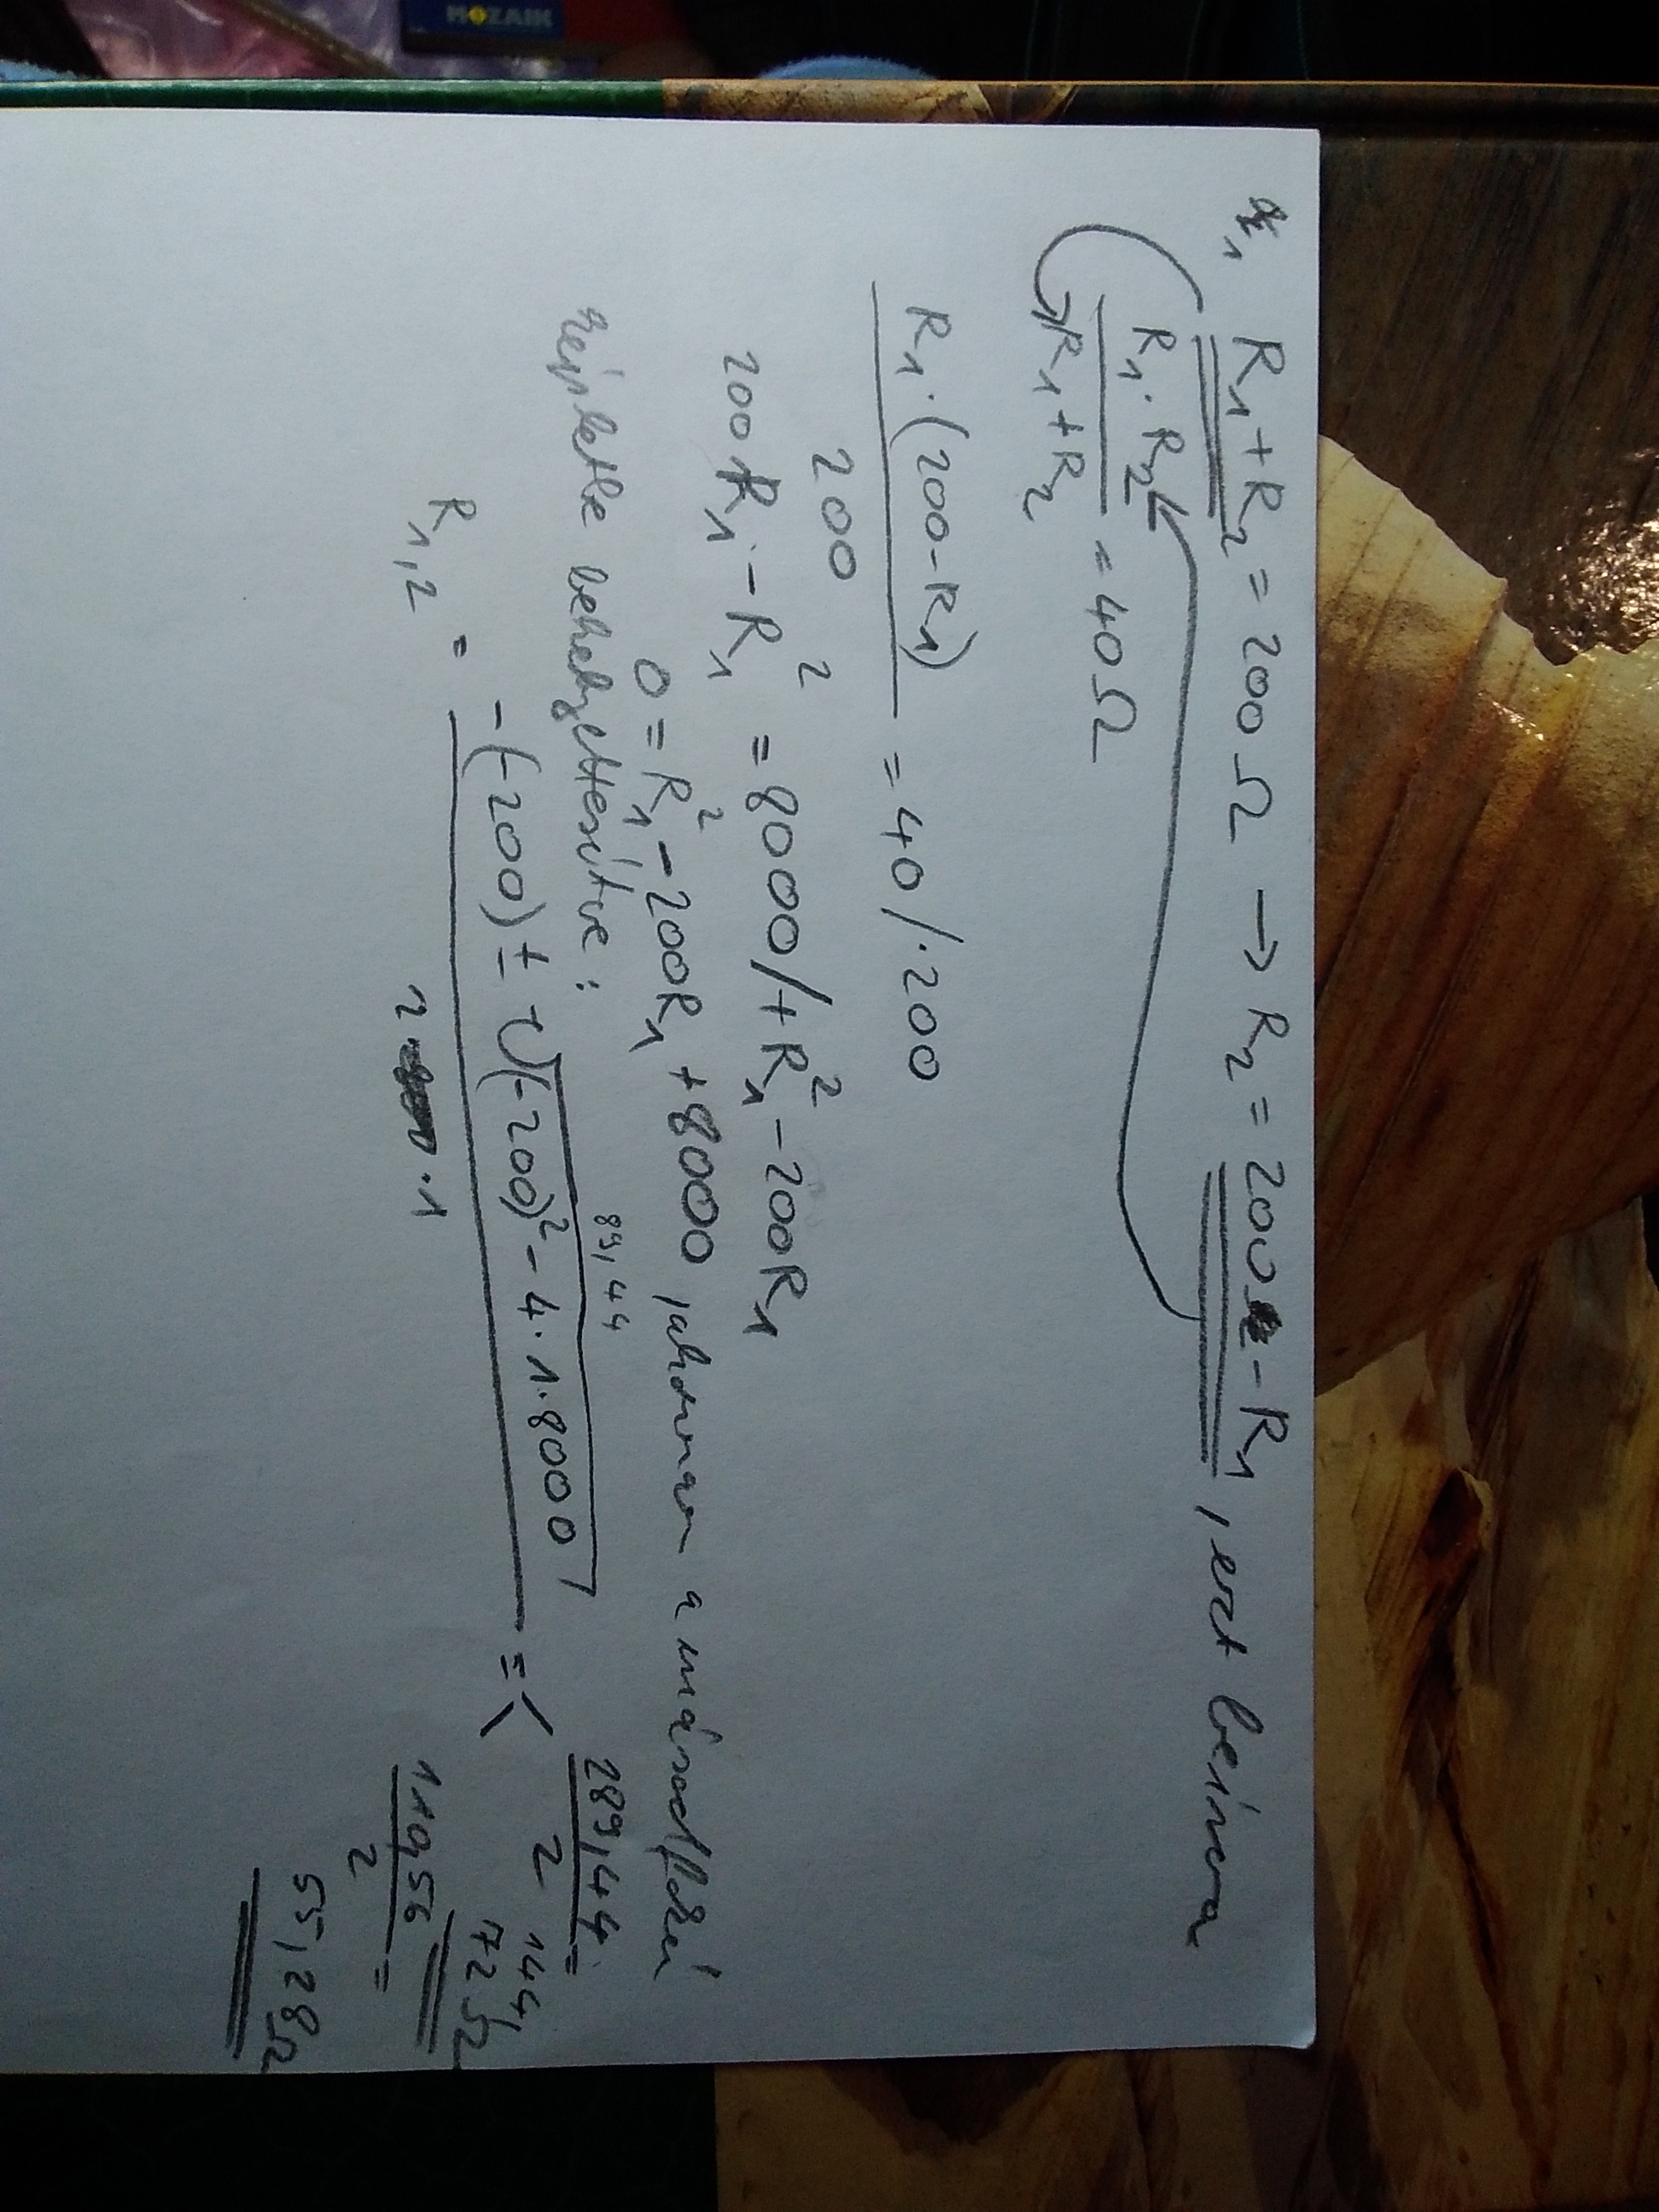 MOZAIK
R₁+R₂ = 200 Ω → R₂ = 200 - R₁, ezt beírva
R₁·R₂ / R₁+R₂ = 40 Ω
R₁·(200-R₁) / 200 = 40 /·200
200R₁ - R₁² = 8000 /+R₁² - 200R₁
0 = R₁² - 200R₁ + 8000, ahonnan a másodfokú
képletbe behelyettesítve:
89,44
R₁,₂ = -(-200) ± √(-200)² - 4·1·8000 / 2·1 = <
289,44 / 2 = 144,72 Ω
110,56 / 2 = 55,28 Ω